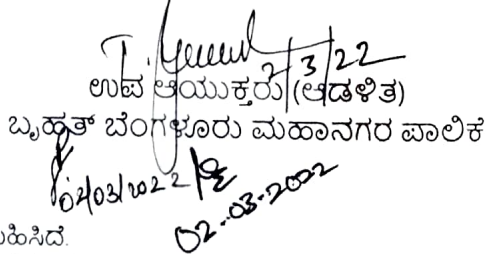 2/3/22
ಉಪ ಆಯುಕ್ತರು (ಆಡಳಿತ)
ಬೃಹತ್ ಬೆಂಗಳೂರು ಮಹಾನಗರ ಪಾಲಿಕೆ
02/03/2022
02-03-2022
ಹಿಸಿದೆ.